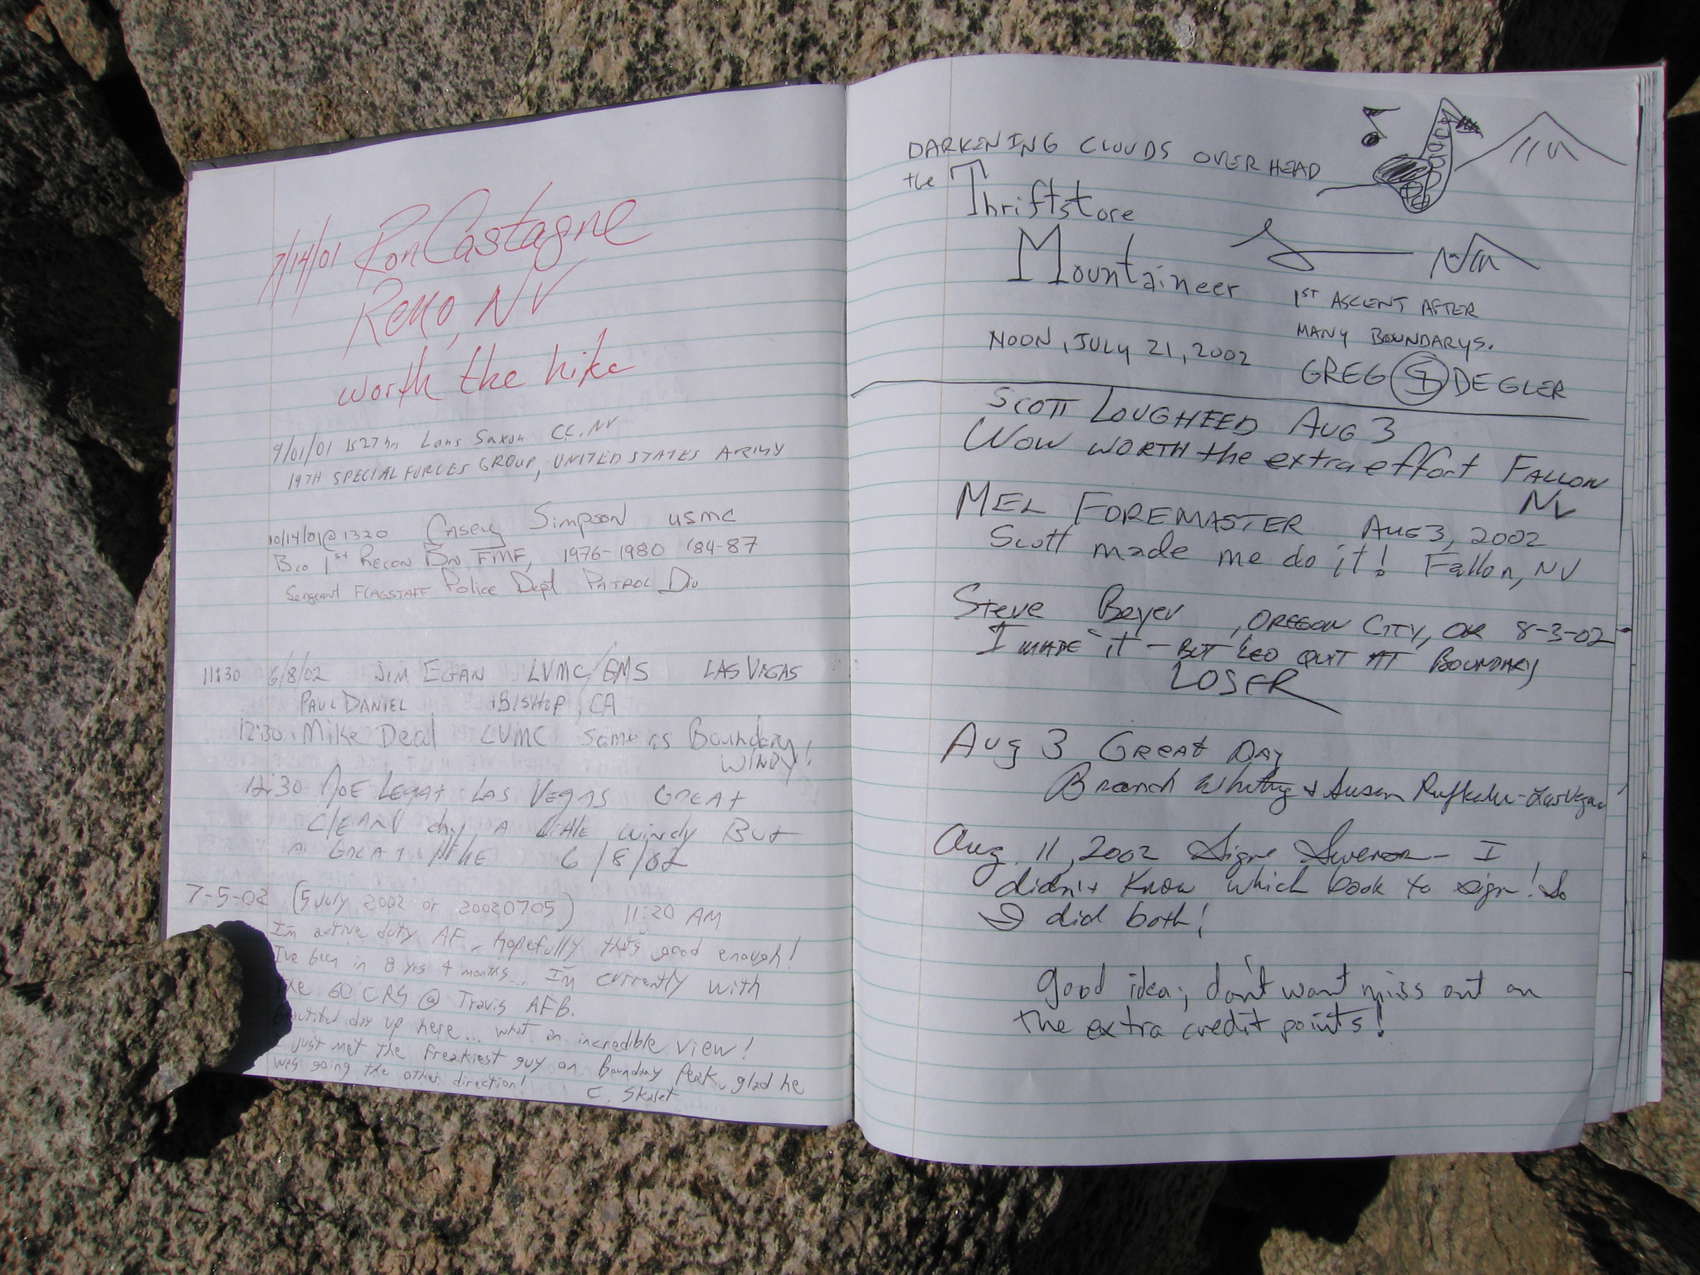 7/14/01 Ron Castagne
Reno, NV
worth the hike
9/01/01 1527 hr Saxon CC. NV
19TH SPECIAL FORCES GROUP, UNITED STATES ARMY
10/14/01 @ 1320 Casey Simpson USMC
Bco 1st RECON BN FMF, 1976-1980 '84-87
Sergeant FLAGSTAFF Police Dept PATROL Div
11:30 6/8/02 JIM EGAN LVMC/EMS LAS VEGAS
PAUL DANIEL BISHOP, CA
12:30 Mike Deal LVMC Same as Boundary,
WINDY!
12:30 LAS VEGAS GREAT
CLEAR day A little windy But
A GREAT HIKE 6/8/02
7-5-02 (5 July 2002 or 20020705) 11:20 AM
I'm active duty AF, hopefully that's good enough!
I've been in 8 yrs 4 months... I'm currently with
60 CRS @ Travis AFB.
day up here... what an incredible view!
just met the freakiest guy on Boundary Peak, glad he
was going the other direction! C.
DARKENING CLOUDS OVERHEAD
the Thriftstore
Mountaineer
1ST ASCENT AFTER
MANY BOUNDARYS.
NOON, JULY 21, 2002
GREG G DEGLER
SCOTT LOUGHEED AUG 3
WOW WORTH the extra effort FALLON
NV
MEL FOREMASTER AUG 3, 2002
Scott made me do it! Fallon, NV
Steve Beyer, OREGON CITY, OR 8-3-02
I MADE it - BUT LEO QUIT AT BOUNDARY
LOSER
Aug 3 GREAT DAY
Branch Whitney & Susan - Las Vegas
Aug 11, 2002 Signe - I
didn't know which book to sign! So
I did both!
good idea; don't want miss out on
the extra credit points!